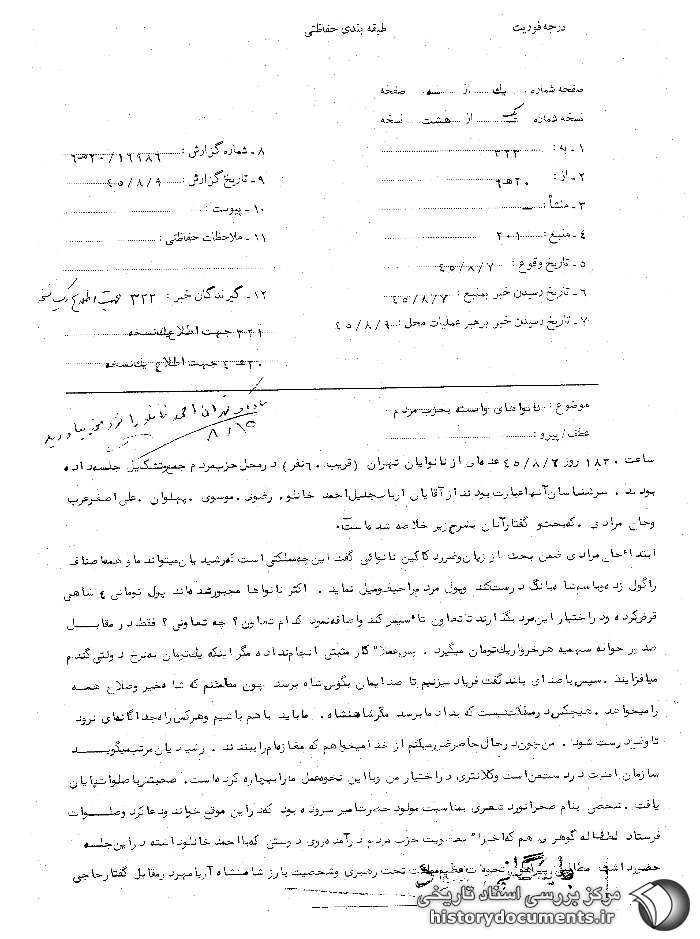 درجه فوریت
طبقه بندی حفاظتی
صفحه شماره یک از سه صفحه
نسخه شماره یک از هشت نسخه
۱ ـ به : ۳۲۳
۲ ـ از : ۲۰ هـ ۶
۳ ـ منشأ :
۴ ـ منبع : ۲۰۱
۵ ـ تاریخ وقوع : ۴۵/۸/۷
۶ ـ تاریخ رسیدن خبر بمنبع : ۴۵/۸/۷
۷ ـ تاریخ رسیدن خبر برهبر عملیات محل : ۴۵/۸/۹
۸ ـ شماره گزارش : ۱۶۹۸۶/۲۰ هـ ۶
۹ ـ تاریخ گزارش : ۴۵/۸/۹
۱۰ ـ پیوست :
۱۱ ـ ملاحظات حفاظتی :
۱۲ ـ گیرندگان خبر : ۳۲۲ جهت اطلاع یک نسخه
۳۲۱ جهت اطلاع یک نسخه
۲۰ هـ ۳ جهت اطلاع یک نسخه
موضوع : نانواهای وابسته بحزب مردم
عطف/پیرو :
۸/۱۵
ساعت ۱۸۳۰ روز ۴۵/۸/۷ عده‌ای از نانوایان تهران (قریب ۶۰ نفر) در محل حزب مردم جمع و تشکیل جلسه داده
بودند . سرشناسان آنها عبارت بودند از آقایان ارباب جلیل احمد خانلو . رضوی . موسوی . پهلوان . علی اصغر عرب
و حاج مرادی . که بحث و گفتار آنان بشرح زیر خلاصه شده است .
ابتدا حاج مرادی ضمن بحث از زیان و ضرر دکاکین نانوائی گفت این چه مملکتی است که رشیدیان میتواند ما و همه اصناف
را گول زده و با سم شاه بانک درست کند و پول مردم را حیف و میل نماید . اکثر نانواها مجبور شده‌اند پول تومانی ۴ شاهی
قرض کرده و در اختیار این مرد بگذارند تا تعاون تأسیس کند و اضافه نمود کدام تعاون ؟ چه تعاونی ؟ فقط در مقابل
صدور حواله سهمیه هر خروار یک تومان میگیرد . پس عملاً کار مثبتی انجام نداده مگر اینکه یک تومان به نرخ دولتی گندم
میافزایند . سپس با صدای بلند گفت فریاد میزنیم تا صدایمان بگوش شاه برسد چون مطمئنم که شاه خیر و صلاح همه
را میخواهد . هیچکس در مملکت نیست که بداد ما برسد مگر شاهنشاه . ما باید با هم باشیم و هر کس راه جداگانه‌ای نرود
تا وضع درست شود . من چون در حال حاضر ضرر میکنم از خدا میخواهم که مغازه‌ام را ببندند . رشیدیان مرتب میگوید
سازمان امنیت در دست من است و کلانتری در اختیار من و با این نحوه عمل ما را بیچاره کرده است . صحبت نیز با صلوات پایان
یافت . شخصی بنام صحرانورد شعری بمناسبت مولود حضرت امیر سروده بود که در این موقع خواند و دعا کرد و صلوات
فرستاد لطف‌اله گوهری هم که اخیراً بعضویت حزب مردم درآمده روی دوستی که با احمد خانلو داشته در این جلسه
حضور داشت مطالبی پیرامون تحولات عظیم مملکت تحت رهبری و شخصیت بارز شاهنشاه آریامهر در مقابل گفتار حاجی
مرکز بررسی اسناد تاریخی
historydocuments.ir